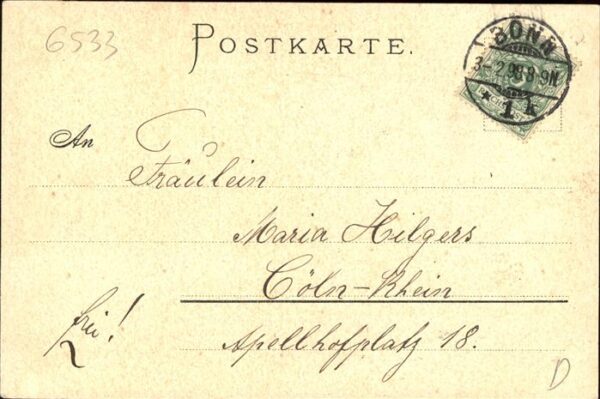 6533
POSTKARTE.
BONN
3-2.98.8-9N
* 1 k
An
Fräulein
Maria Hilgers
Cöln-Rhein
frei!
Apellhofplatz 18.
D